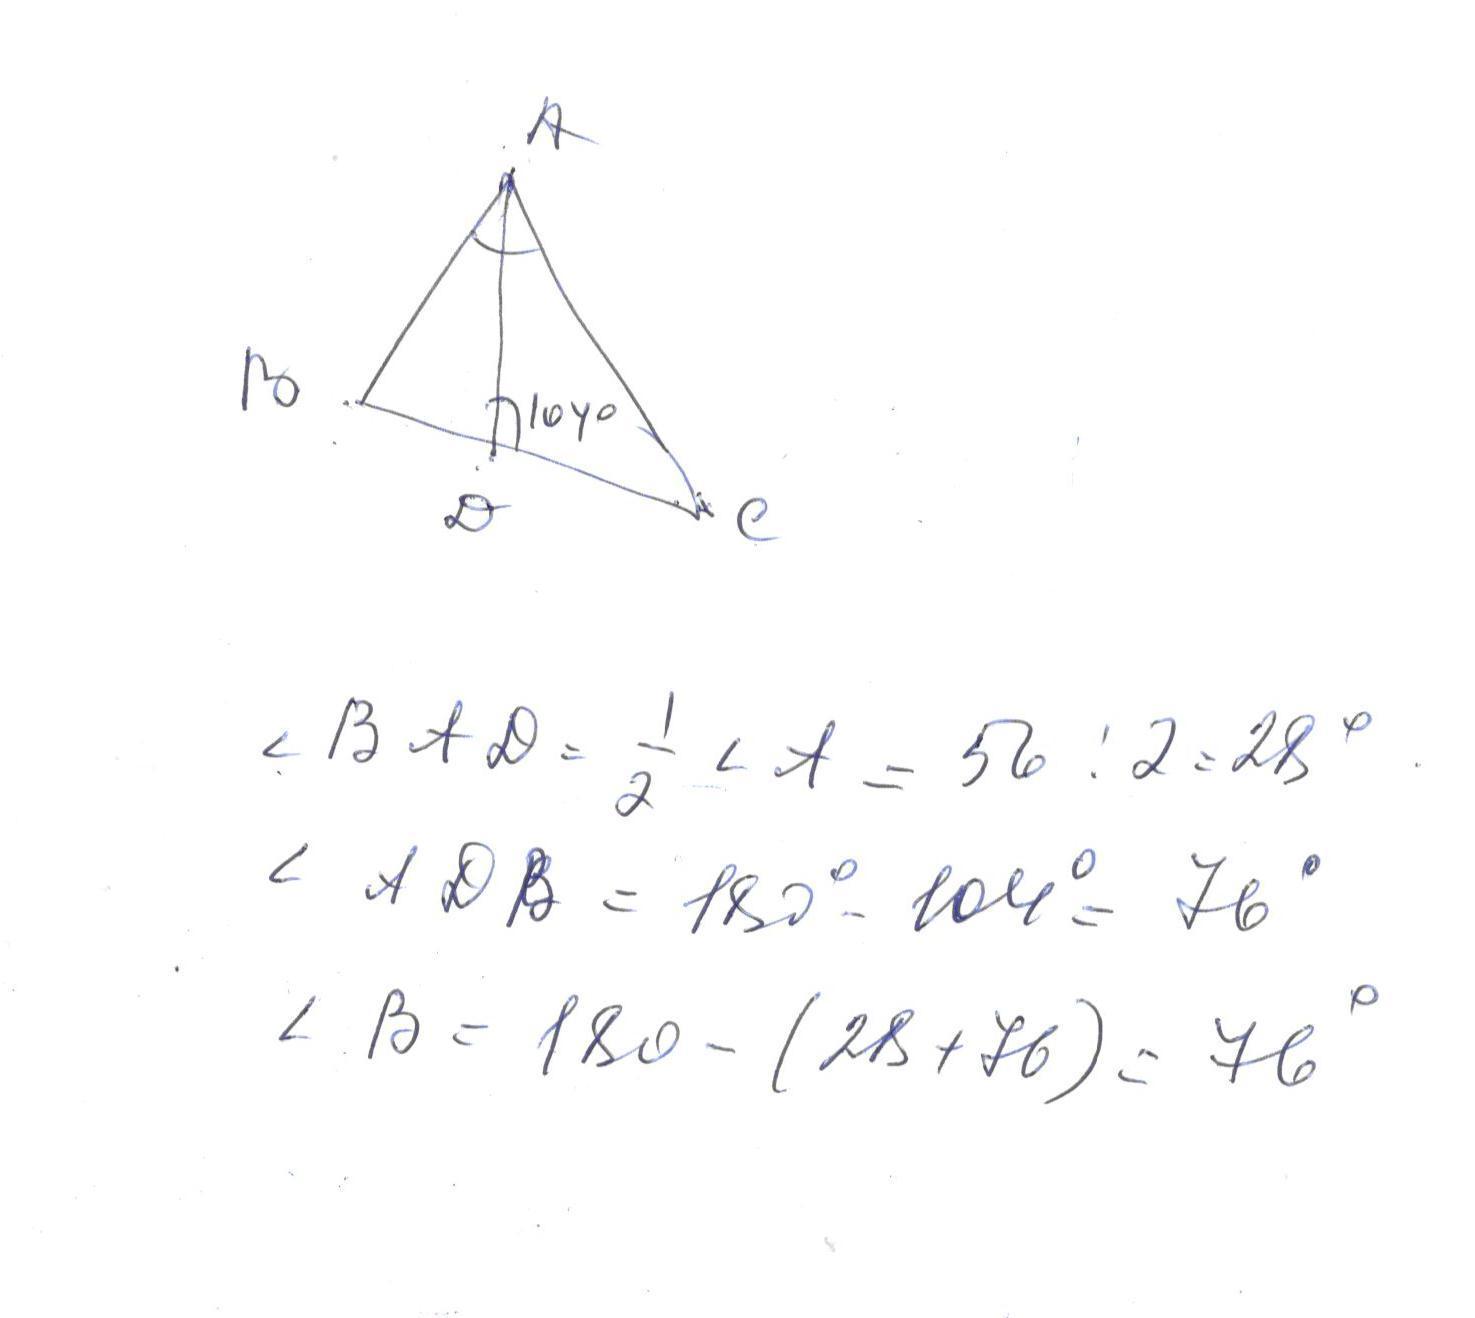 A
B
104°
D
C
< BAD = 1/2 < A = 56 : 2 = 28°
< ADB = 180° - 104° = 76°
< B = 180 - (28 + 76) = 76°